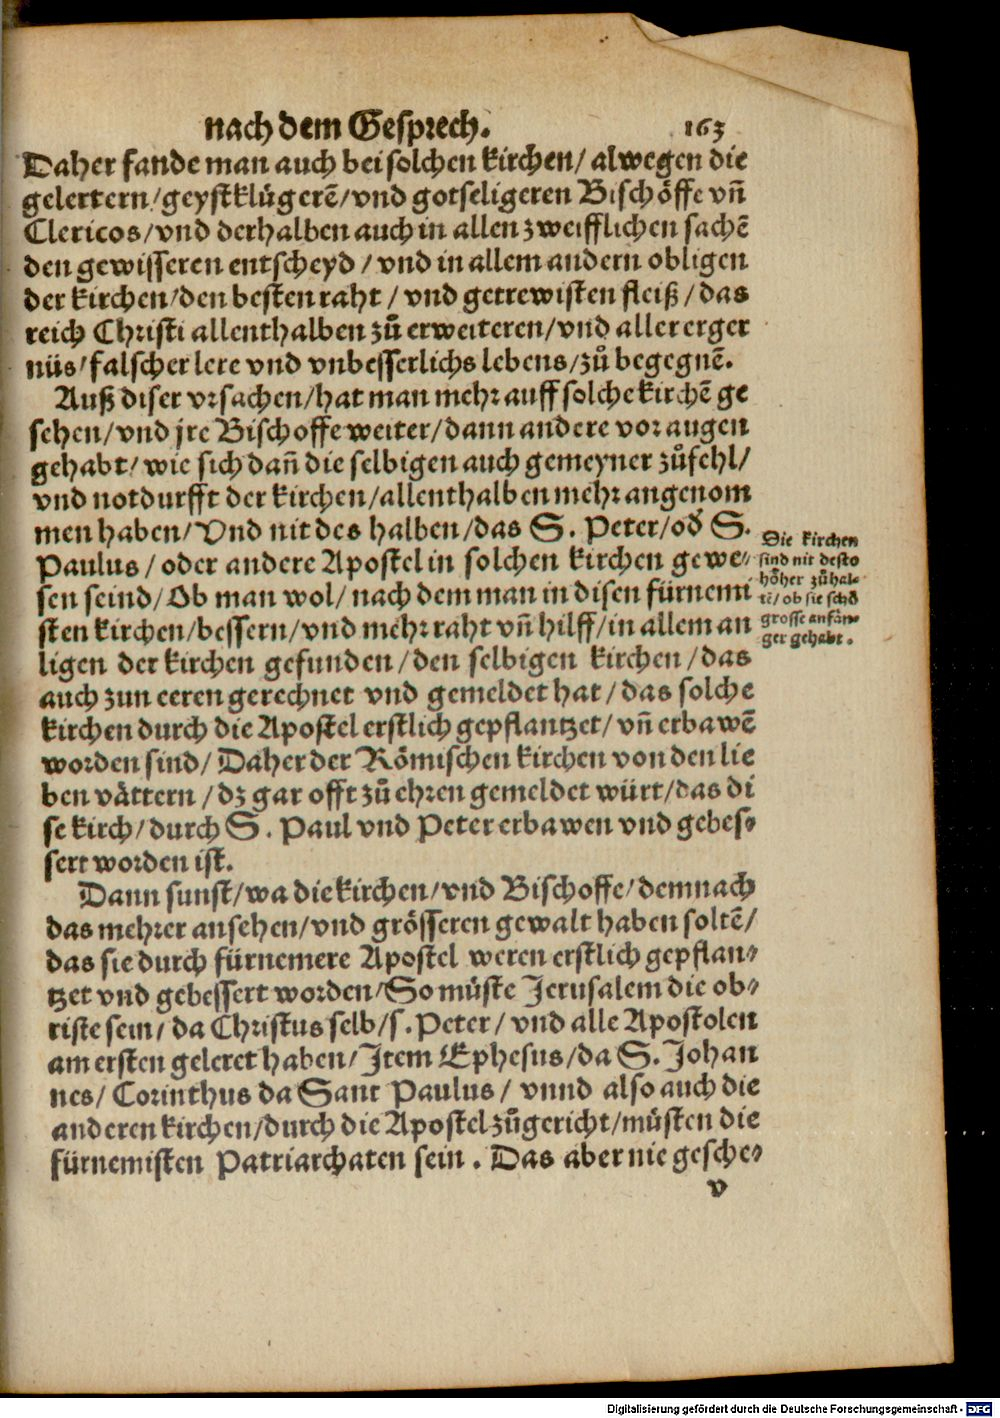 nach dem Gesprech. 163
Daher fande man auch bei solchen kirchen/ alwegen die
gelertern/geystklügerẽ/vnd gotseligeren Bischöffe vñ
Clericos/vnd derhalben auch in allen zweifflichen sachẽ
den gewisseren entscheyd/ vnd in allem andern obligen
der kirchen/den besten raht/ vnd getrewisten fleiß/das
reich Christi allenthalben zů erweiteren/vnd aller erger
nüs/falscher lere vnd vnbesserlichs lebens/zů begegnẽ.
Auß diser vrsachen/hat man mehr auff solche kirchẽ ge
sehen/vnd jre Bischoffe weiter/dann andere vor augen
gehabt/wie sich dañ die selbigen auch gemeyner zůfehl/
vnd notdurfft der kirchen/allenthalben mehr angenom
men haben/Vnd nit des halben/das S. Peter/oď S.
Paulus/oder andere Apostel in solchen kirchen gewe⸗
sen seind/Ob man wol/nach dem man in disen fürnemi
sten kirchen/bessern/vnd mehr raht vñ hilff/in allem an
ligen der kirchen gefunden/den selbigen kirchen/das
auch zun eeren gerechnet vnd gemeldet hat/das solche
kirchen durch die Apostel erstlich gepflantzet/vñ erbawẽ
worden sind/Daher der Römischen kirchen von den lie
ben vättern/dz gar offt zů ehren gemeldet würt/das di
se kirch/durch S. Paul vnd Peter erbawen vnd gebes⸗
sert worden ist.
Dann sunst/wa die kirchen/vnd Bischoffe/demnach
das mehrer ansehen/vnd grösseren gewalt haben soltẽ/
das sie durch fürnemere Apostel weren erstlich gepflan⸗
tzet vnd gebessert worden/So müste Jerusalem die ob⸗
riste sein/da Christus selb/s. Peter/vnd alle Apostolen
am ersten geleret haben/Item Ephesus/da S. Johan
nes/ Corinthus da Sant Paulus/ vnnd also auch die
anderen kirchen/durch die Apostel zůgericht/müsten die
fürnemisten Patriarchaten sein. Das aber nie gesche⸗
v
Die kirchen
sind nit desto
höher zů hal⸗
tẽ/ob sie schõ
grosse anfän⸗
ger gehabt.
Digitalisierung gefördert durch die Deutsche Forschungsgemeinschaft - DFG